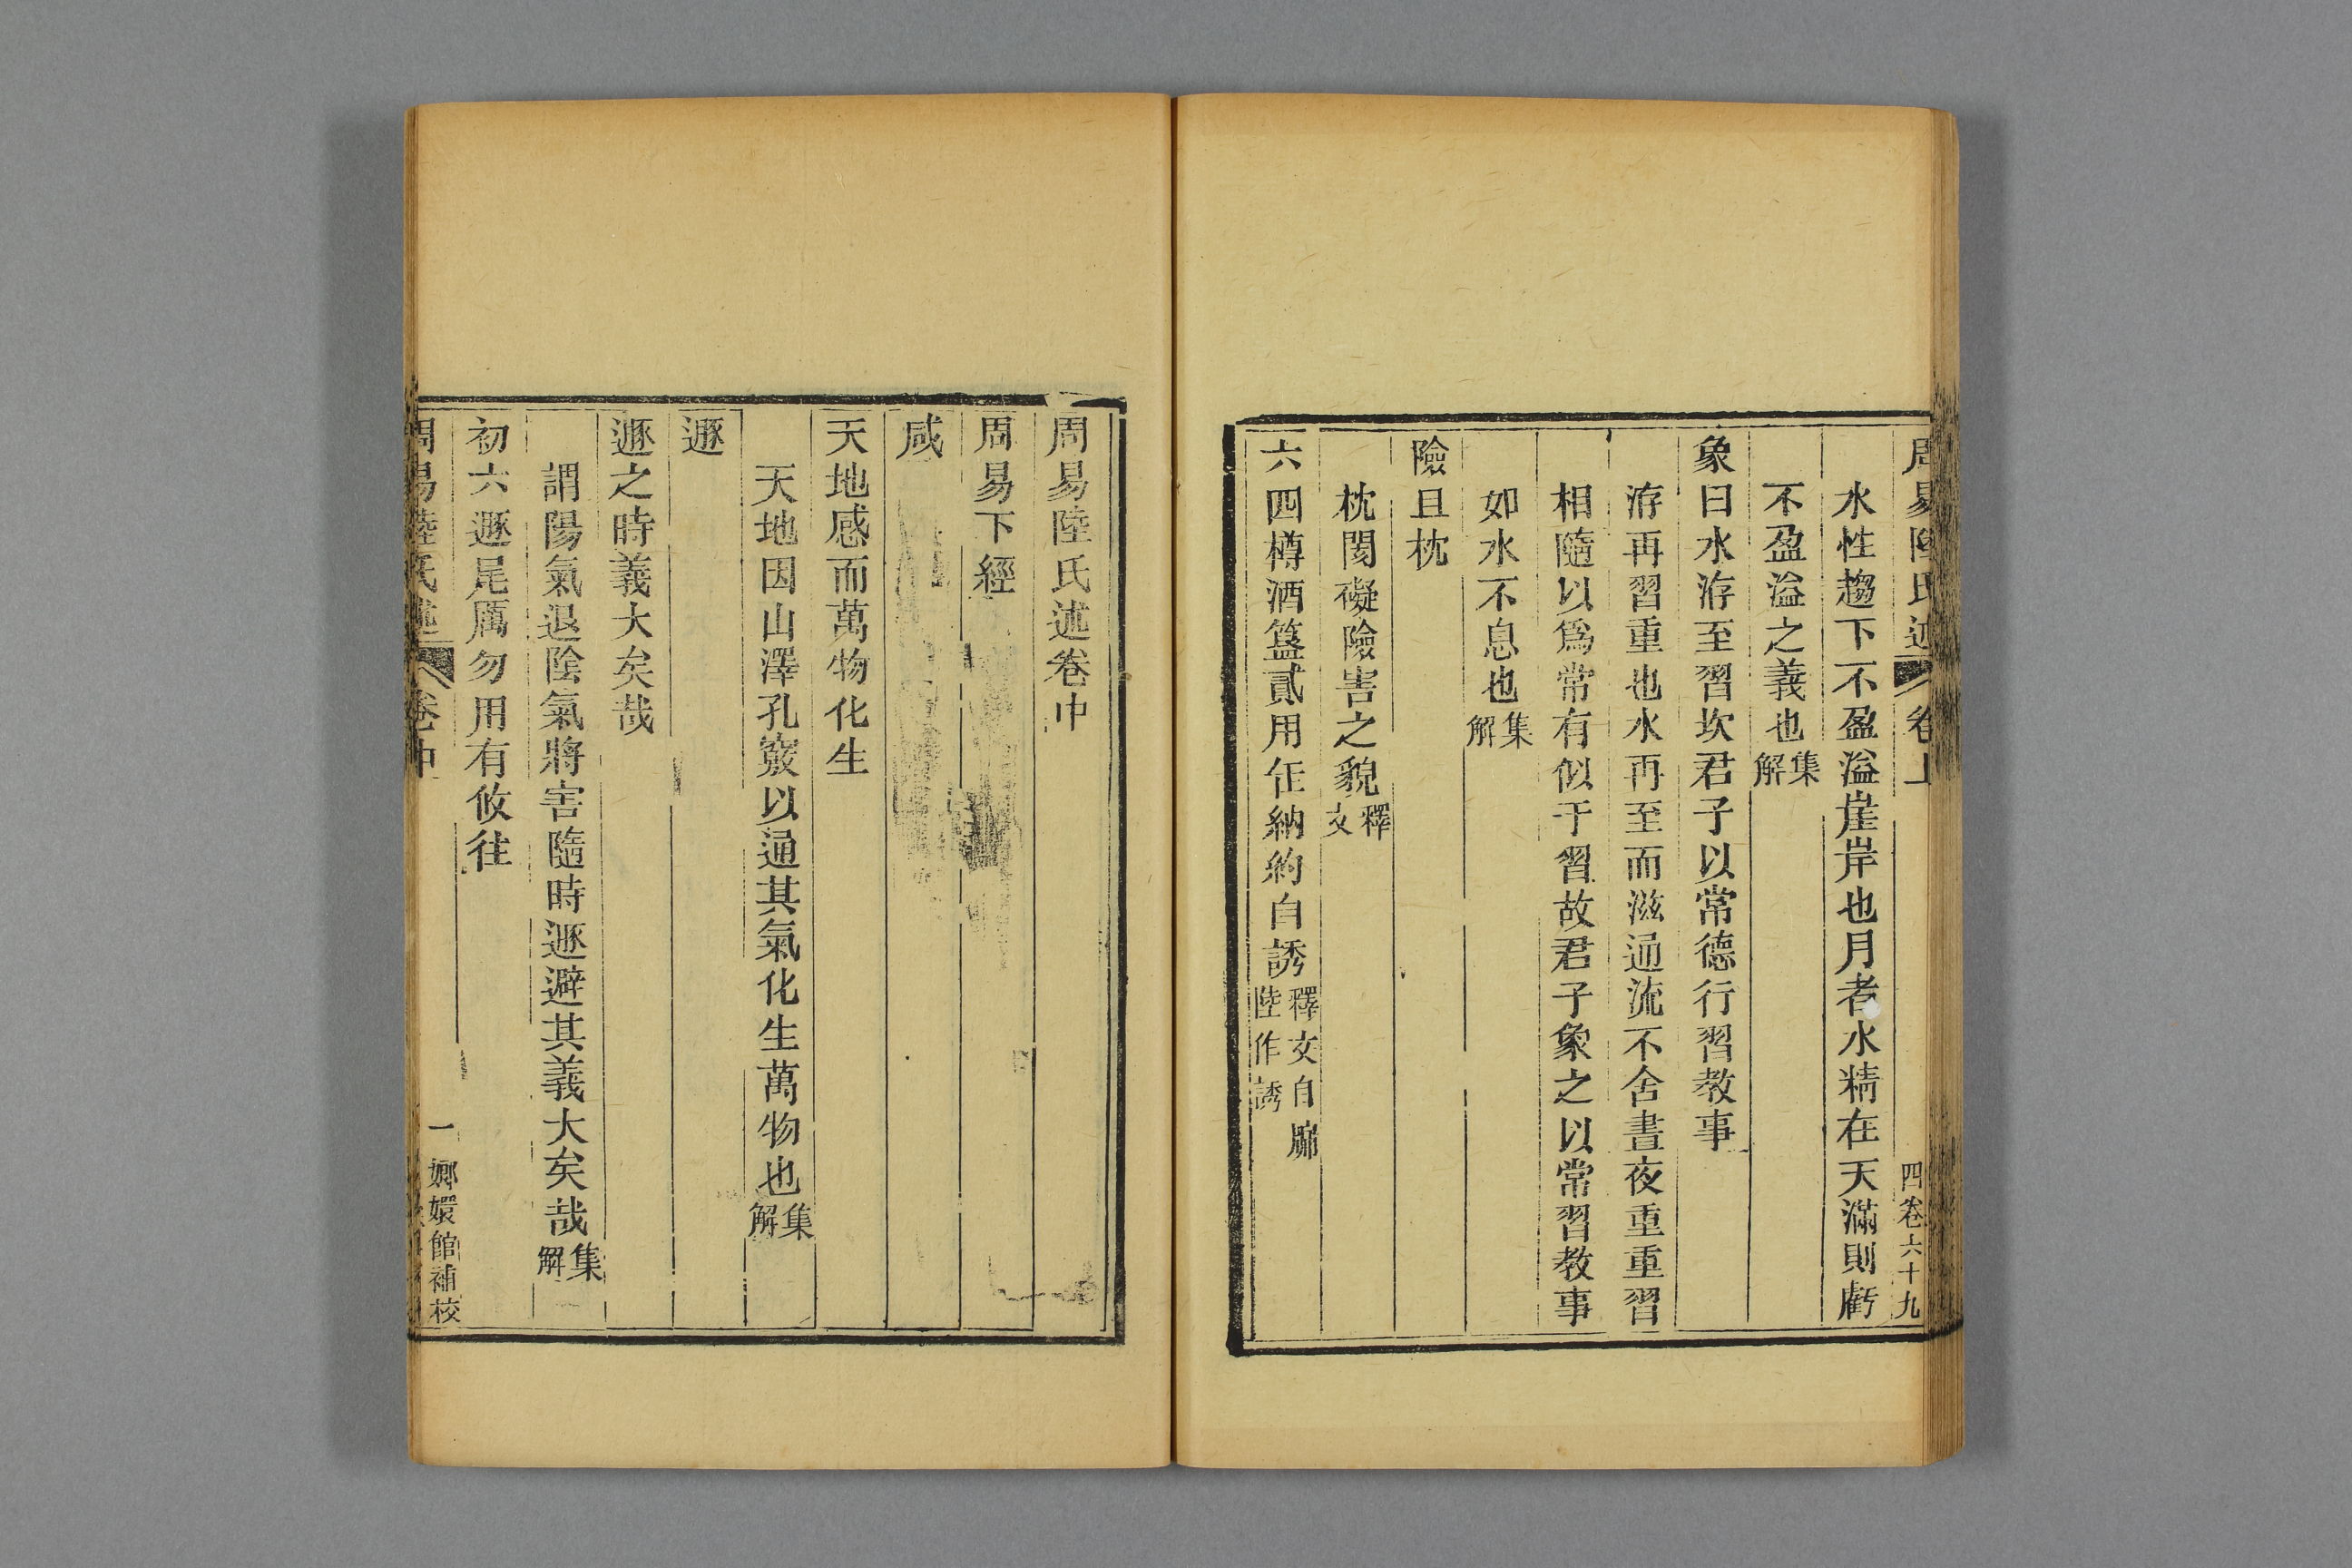 周易陸氏述 卷上 四卷六十九
水性趨下不盈溢崖岸也月者水精在天滿則虧
不盈溢之義也集解
象曰水洊至習坎君子以常德行習教事
洊再習重也水再至而滋通流不舍晝夜重重習
相隨以爲常有似于習故君子象之以常習教事
如水不息也集解
險且枕
枕閡礙險害之貌釋文
六四樽酒簋貳用缶納約自誘釋文自牖陸作誘
周易陸氏述卷中
周易下經
咸
天地感而萬物化生
天地因山澤孔竅以通其氣化生萬物也集解
遯
遯之時義大矣哉
謂陽氣退陰氣將害隨時遯避其義大矣哉集解
初六遯尾厲勿用有攸往
周易陸氏述 卷中 一 嫏嬛館補校